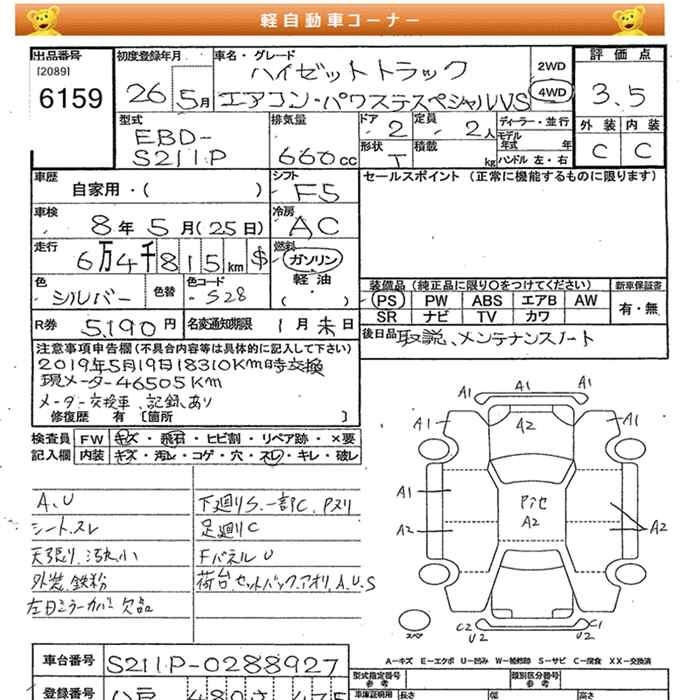 軽自動車コーナー
出品番号 初度登録年月 車名・グレード 評価点
[2089]
6159
26 5月
ハイゼットトラック
エアコン・パワステスペシャルVS
2WD
4WD
3.5
外装 内装
C C
型式 EBD-
S211P
排気量 660cc
ドア 2 定員 2人
ディーラー・並行
モデル年式 年
形状 T 積載 kg ハンドル 左・右
車歴 自家用・( )
シフト F5
セールスポイント (正常に機能するものに限ります)
車検 8年5月(25日)
冷房 AC
走行 6万4千815km $
燃料 ガソリン
軽油
( )
色 シルバー 色替 色コード S28
装備品 (純正品に限り○をつけてください) 新車保証書
PS PW ABS エアB AW
SR ナビ TV カワ
有・無
R券 5,190円 名変通知期限 1月末日
後日品 取説、メンテナンスノート
注意事項申告欄(不具合内容等は具体的に記入して下さい)
2019年5月19日18310Km時交換
現メーター46505Km
メーター交換車、記録あり
修復歴 有 [箇所 ]
検査員 FW キズ・飛石・ヒビ割・リペア跡・×要
記入欄 内装 キズ・汚レ・コゲ・穴・スレ・キレ・破レ
A.U
シート.スレ
天張り.汚れ小
外装.鉄粉
左ミラーカバー欠品
下廻りS.一部C.Pヌリ
足廻りC
FパネルU
荷台.セットバック.アオリ.A.U.S
A1 A1 A1
A1 A2 A1
A1
A2 A2 A2
C2 U2 C1 U2
スペア
A-キズ E-エクボ U-凹み W-補修跡 S-サビ C-腐食 XX-交換済
車台番号 S211P-0288927
登録番号
型式指定番号 参考 類別区分番号 参考
車庫証明用 長さ 幅 高さ